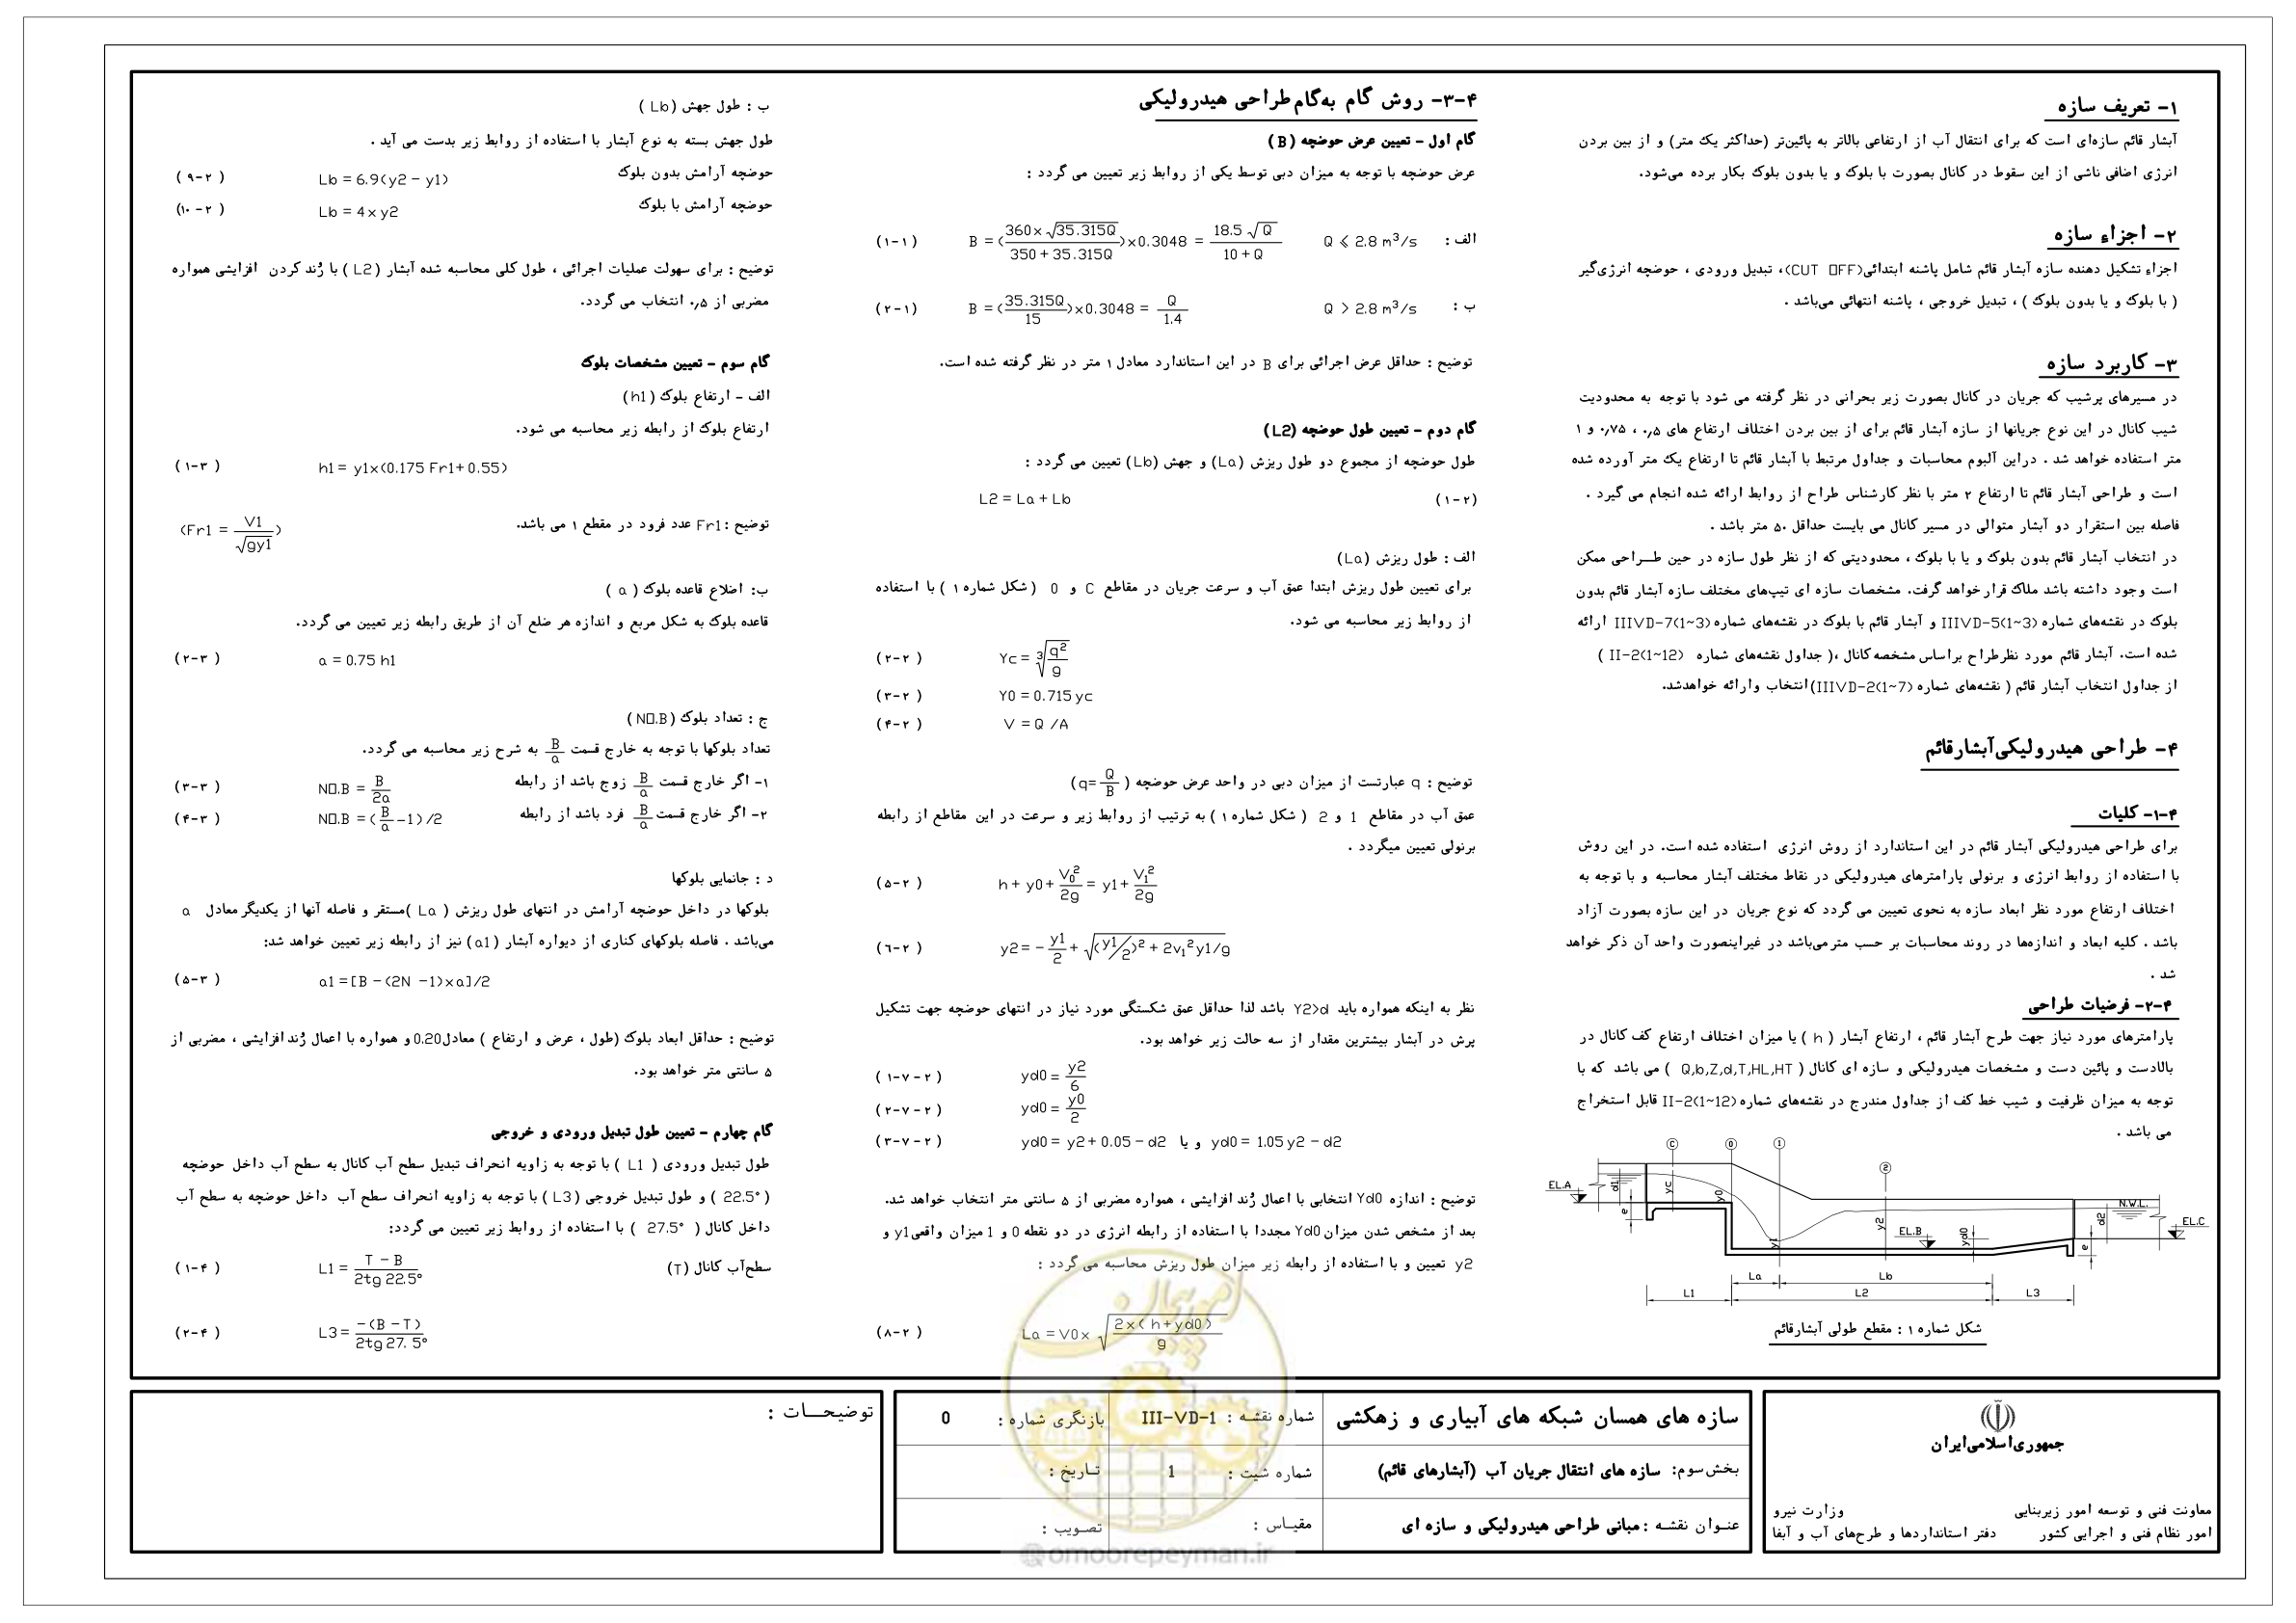 ۱- تعریف سازه
آبشار قائم سازه‌ای است که برای انتقال آب از ارتفاعی بالاتر به پائین‌تر (حداکثر یک متر) و از بین بردن
انرژی اضافی ناشی از این سقوط در کانال بصورت با بلوک و یا بدون بلوک بکار برده می‌شود.
۲- اجزاء سازه
اجزاء تشکیل دهنده سازه آبشار قائم شامل پاشنه ابتدائی(CUT □FF)، تبدیل ورودی ، حوضچه انرژی‌گیر
( با بلوک و یا بدون بلوک ) ، تبدیل خروجی ، پاشنه انتهائی می‌باشد .
۳- کاربرد سازه
در مسیرهای پرشیب که جریان در کانال بصورت زیر بحرانی در نظر گرفته می شود با توجه به محدودیت
شیب کانال در این نوع جریانها از سازه آبشار قائم برای از بین بردن اختلاف ارتفاع های ۰٫۵ ، ۰٫۷۵ و ۱
متر استفاده خواهد شد . دراین آلبوم محاسبات و جداول مرتبط با آبشار قائم تا ارتفاع یک متر آورده شده
است و طراحی آبشار قائم تا ارتفاع ۲ متر با نظر کارشناس طراح از روابط ارائه شده انجام می گیرد .
فاصله بین استقرار دو آبشار متوالی در مسیر کانال می بایست حداقل ۵۰ متر باشد .
در انتخاب آبشار قائم بدون بلوک و یا با بلوک ، محدودیتی که از نظر طول سازه در حین طـــراحی ممکن
است وجود داشته باشد ملاک قرار خواهد گرفت. مشخصات سازه ای تیپ‌های مختلف سازه آبشار قائم بدون
بلوک در نقشه‌های شماره IIIVD-5(1~3) و آبشار قائم با بلوک در نقشه‌های شماره IIIVD-7(1~3) ارائه
شده است. آبشار قائم مورد نظرطراح براساس مشخصه کانال ،( جداول نقشه‌های شماره II-2(1~12) )
از جداول انتخاب آبشار قائم ( نقشه‌های شماره IIIVD-2(1~7))انتخاب وارائه خواهدشد.
۴- طراحی هیدرولیکی‌آبشارقائم
۴-۱- کلیات
برای طراحی هیدرولیکی آبشار قائم در این استاندارد از روش انرژی استفاده شده است. در این روش
با استفاده از روابط انرژی و برنولی پارامترهای هیدرولیکی در نقاط مختلف آبشار محاسبه و با توجه به
اختلاف ارتفاع مورد نظر ابعاد سازه به نحوی تعیین می گردد که نوع جریان در این سازه بصورت آزاد
باشد . کلیه ابعاد و اندازه‌ها در روند محاسبات بر حسب مترمی‌باشد در غیراینصورت واحد آن ذکر خواهد
شد .
۴-۲- فرضیات طراحی
پارامترهای مورد نیاز جهت طرح آبشار قائم ، ارتفاع آبشار ( h ) یا میزان اختلاف ارتفاع کف کانال در
بالادست و پائین دست و مشخصات هیدرولیکی و سازه ای کانال ( Q,b,Z,d,T,HL,HT ) می باشد که با
توجه به میزان ظرفیت و شیب خط کف از جداول مندرج در نقشه‌های شماره II-2(1~12) قابل استخراج
می باشد .
C 0 1 2
EL.A d1 e yc y0 y1 y2 EL.B yd0 N.W.L. d2 e EL.C
La Lb
L1 L2 L3
شکل شماره ۱ : مقطع طولی آبشارقائم
۴-۳- روش گام به‌گام طراحی هیدرولیکی
گام اول - تعیین عرض حوضچه ( B )
عرض حوضچه با توجه به میزان دبی توسط یکی از روابط زیر تعیین می گردد :
الف : Q ⩽ 2.8 m³/s B = (360×√35.315Q / 350+35.315Q)×0.3048 = 18.5 √Q / 10+Q (۱-۱ )
ب : Q > 2.8 m³/s B = (35.315Q / 15)×0.3048 = Q / 1.4 (۲-۱)
توضیح : حداقل عرض اجرائی برای B در این استاندارد معادل ۱ متر در نظر گرفته شده است.
گام دوم - تعیین طول حوضچه (L2)
طول حوضچه از مجموع دو طول ریزش (La) و جهش (Lb) تعیین می گردد :
L2 = La + Lb (۱-۲)
الف : طول ریزش (La)
برای تعیین طول ریزش ابتدا عمق آب و سرعت جریان در مقاطع C و 0 ( شکل شماره ۱ ) با استفاده
از روابط زیر محاسبه می شود.
Yc = ³√(q²/g) (۲-۲ )
Y0 = 0.715 yc (۳-۲ )
V = Q /A (۴-۲ )
توضیح : q عبارتست از میزان دبی در واحد عرض حوضچه ( q= Q/B )
عمق آب در مقاطع 1 و 2 ( شکل شماره ۱ ) به ترتیب از روابط زیر و سرعت در این مقاطع از رابطه
برنولی تعیین میگردد .
h + y0 + V₀²/2g = y1 + V₁²/2g (۵-۲ )
y2 = - y1/2 + √((y1/2)² + 2v₁²y1/g) (۶-۲ )
نظر به اینکه همواره باید Y2>d باشد لذا حداقل عمق شکستگی مورد نیاز در انتهای حوضچه جهت تشکیل
پرش در آبشار بیشترین مقدار از سه حالت زیر خواهد بود.
yd0 = y2/6 ( ۱-۷ - ۲ )
yd0 = y0/2 (۲-۷ - ۲ )
yd0 = y2 + 0.05 - d2 و یا yd0 = 1.05 y2 - d2 (۳-۷ - ۲ )
توضیح : اندازه Yd0 انتخابی با اعمال رُند افزایشی ، همواره مضربی از ۵ سانتی متر انتخاب خواهد شد.
بعد از مشخص شدن میزان Yd0 مجددا با استفاده از رابطه انرژی در دو نقطه 0 و 1 میزان واقعی y1 و
y2 تعیین و با استفاده از رابطه زیر میزان طول ریزش محاسبه می گردد :
La = V0 × √(2×( h+yd0) / g) (۸-۲ )
ب : طول جهش ( Lb )
طول جهش بسته به نوع آبشار با استفاده از روابط زیر بدست می آید .
حوضچه آرامش بدون بلوک Lb = 6.9(y2 - y1) ( ۹-۲ )
حوضچه آرامش با بلوک Lb = 4 × y2 (۱۰ -۲ )
توضیح : برای سهولت عملیات اجرائی ، طول کلی محاسبه شده آبشار ( L2 ) با رُند کردن افزایشی همواره
مضربی از ۰٫۵ انتخاب می گردد.
گام سوم - تعیین مشخصات بلوک
الف - ارتفاع بلوک ( h1)
ارتفاع بلوک از رابطه زیر محاسبه می شود.
h1 = y1×(0.175 Fr1+0.55) (۱-۳ )
توضیح : Fr1 عدد فرود در مقطع ۱ می باشد. (Fr1 = V1/√gy1)
ب: اضلاع قاعده بلوک ( a )
قاعده بلوک به شکل مربع و اندازه هر ضلع آن از طریق رابطه زیر تعیین می گردد.
a = 0.75 h1 (۲-۳ )
ج : تعداد بلوک ( N□.B )
تعداد بلوکها با توجه به خارج قسمت B/a به شرح زیر محاسبه می گردد.
۱- اگر خارج قسمت B/a زوج باشد از رابطه N□.B = B/2a (۳-۳ )
۲- اگر خارج قسمت B/a فرد باشد از رابطه N□.B = ( B/a -1) /2 (۴-۳ )
د : جانمایی بلوکها
بلوکها در داخل حوضچه آرامش در انتهای طول ریزش ( La )مستقر و فاصله آنها از یکدیگر معادل a
می‌باشد . فاصله بلوکهای کناری از دیواره آبشار ( a1) نیز از رابطه زیر تعیین خواهد شد:
a1 = [B - (2N -1)×a]/2 (۵-۳ )
توضیح : حداقل ابعاد بلوک (طول ، عرض و ارتفاع ) معادل0.20 و همواره با اعمال رُند افزایشی ، مضربی از
۵ سانتی متر خواهد بود.
گام چهارم - تعیین طول تبدیل ورودی و خروجی
طول تبدیل ورودی ( L1 ) با توجه به زاویه انحراف تبدیل سطح آب کانال به سطح آب داخل حوضچه
( 22.5° ) و طول تبدیل خروجی ( L3 ) با توجه به زاویه انحراف سطح آب داخل حوضچه به سطح آب
داخل کانال ( 27.5° ) با استفاده از روابط زیر تعیین می گردد:
سطح‌آب کانال (T) L1 = T - B / 2tg 22.5° (۱-۴ )
L3 = -(B - T) / 2tg 27.5° (۲-۴ )
جمهوری‌اسلامی‌ایران
معاونت فنی و توسعه امور زیربنایی وزارت نیرو
امور نظام فنی و اجرایی کشور دفتر استانداردها و طرح‌های آب و آبفا
سازه های همسان شبکه های آبیاری و زهکشی
بخش‌سوم: سازه های انتقال جریان آب (آبشارهای قائم)
عنـوان نقشـه : مبانی طراحی هیدرولیکی و سازه ای
شماره نقشـه : III-VD-1
شماره شیت : 1
مقیـاس :
بازنگری شماره : 0
تـاریخ :
تصـویب :
توضیحـــات :
امور پیمان
@omoorepeyman.ir